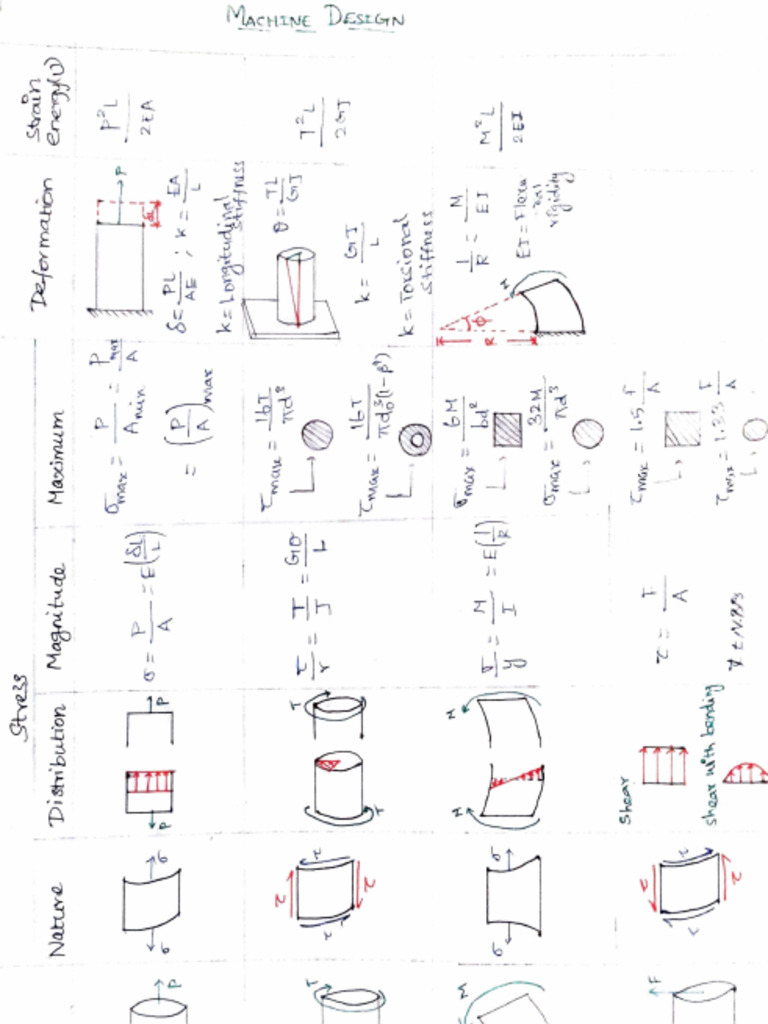 MACHINE DESIGN
Stress
Nature
Distribution
Magnitude
Maximum
Deformation
Strain
energy(U)
P
σ
σ
P
P
σ = P/A = E(δL/L)
σmax = P/Amin = Pmax/A
= (P/A)max
P
δ = PL/AE ; k = EA/L
k = Longitudinal
stiffness
P²L/2EA
T
τ
τ
τ
τ
T
T
τ/r = T/J = Gθ/L
τmax = 16T/πd³
τmax = 16T/πd₀³(1-β⁴)
θ = TL/GJ
k = GJ/L
k = Torsional
stiffness
T²L/2GJ
M
σ
σ
M
M
σ/y = M/I = E(1/R)
σmax = 6M/bd²
σmax = 32M/πd³
M
R
1/R = M/EI
EI = Flexu
ral
rigidity
M²L/2EI
F
τ
τ
τ
τ
shear
shear with bending
τ = F/A
τmax = 1.5 F/A
τmax = 1.33 F/A